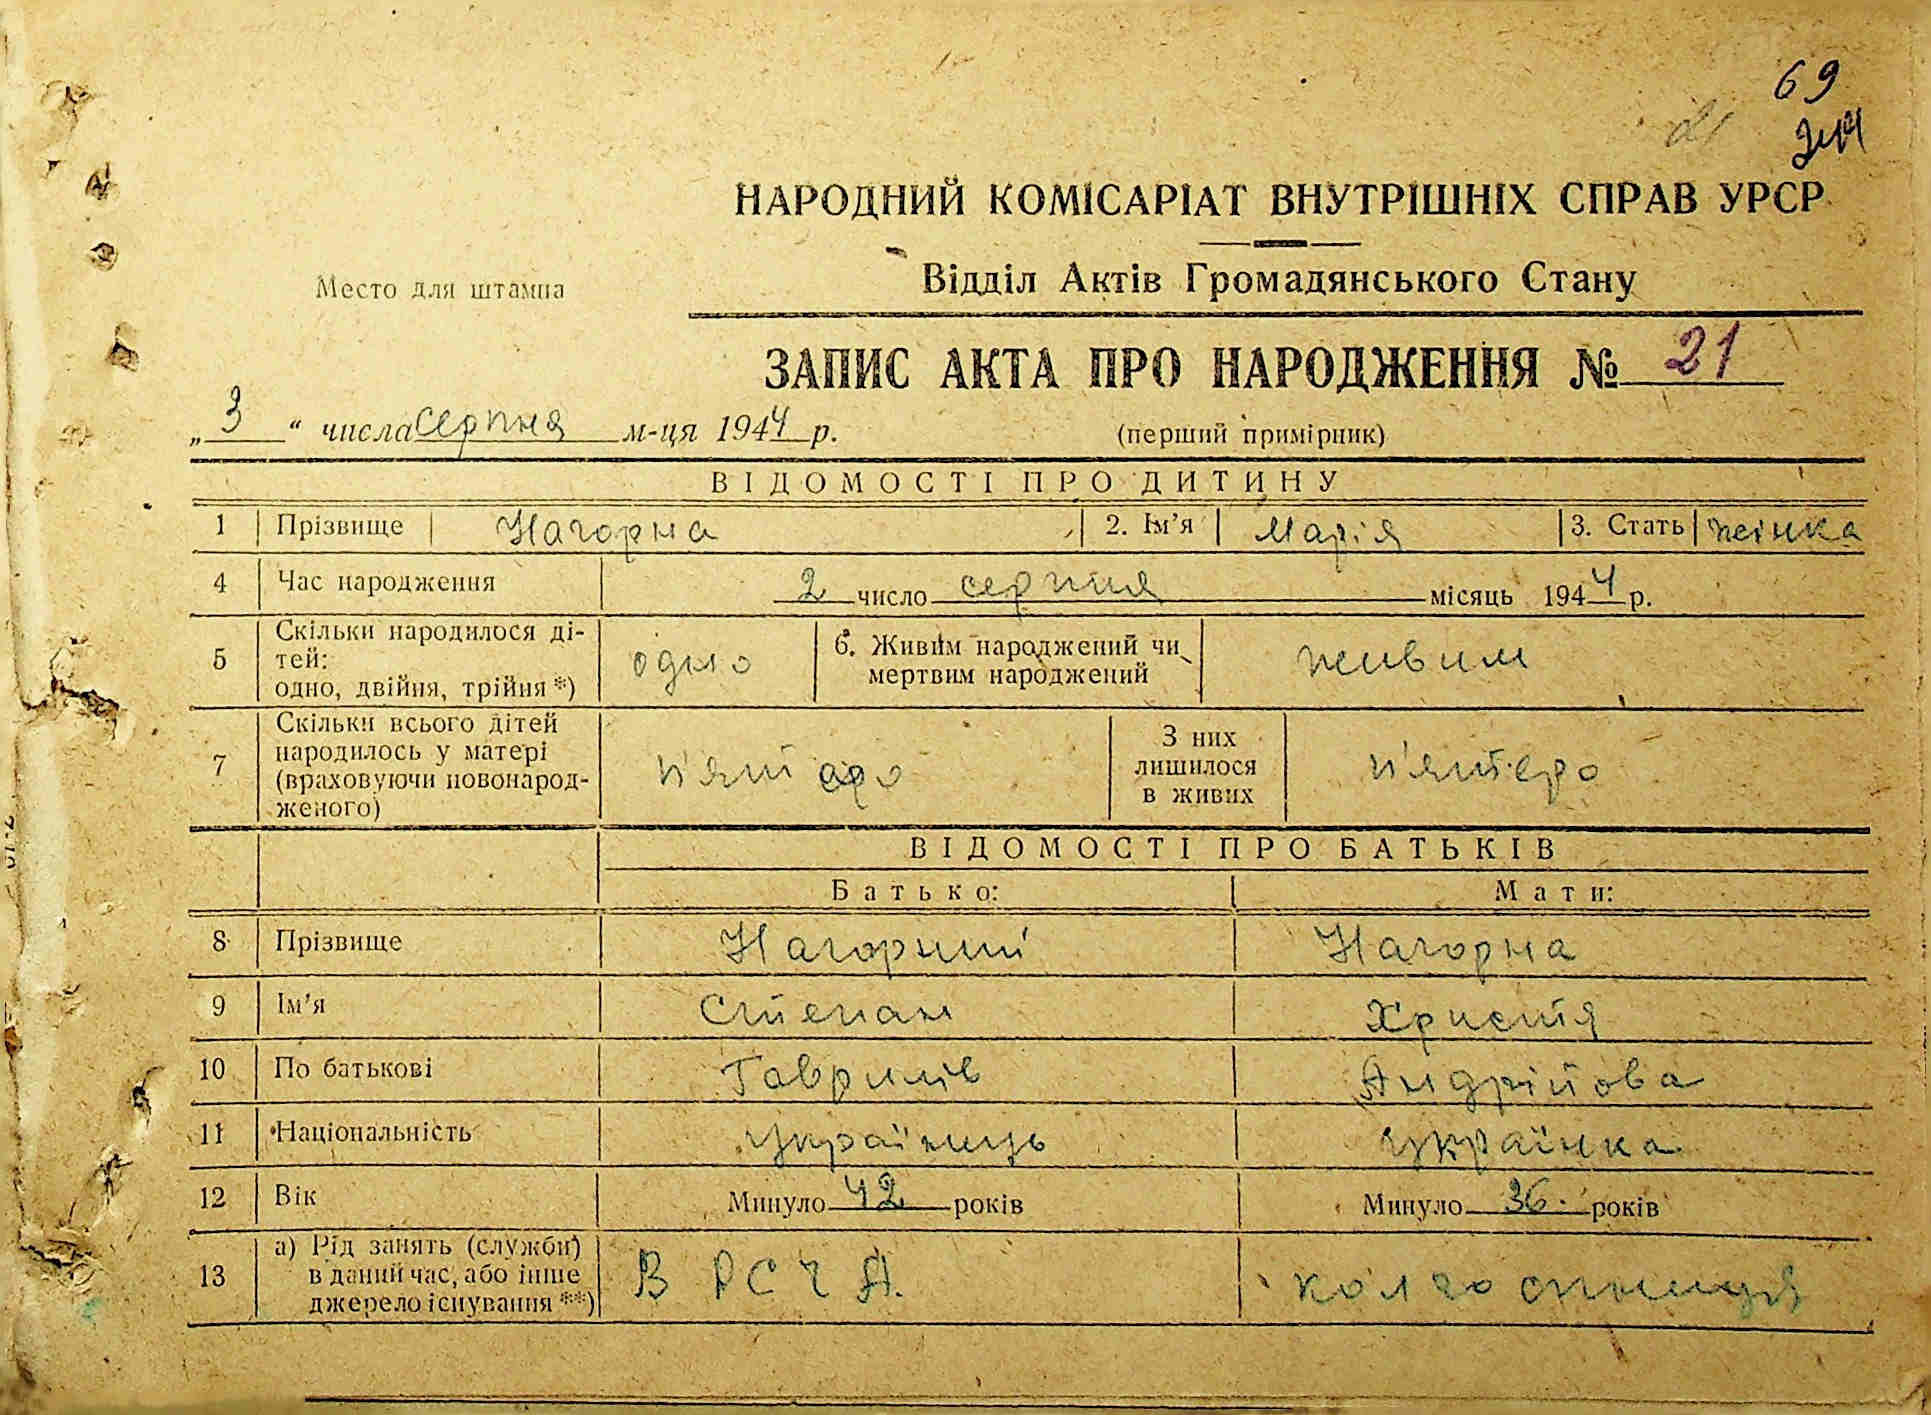 69
21
НАРОДНИЙ КОМІСАРІАТ ВНУТРІШНІХ СПРАВ УРСР
Место для штампа
Відділ Актів Громадянського Стану
ЗАПИС АКТА ПРО НАРОДЖЕННЯ № 21
„3“ числа серпня м-ця 1944 р.
(перший примірник)
ВІДОМОСТІ ПРО ДИТИНУ
1 Прізвище Нагорна 2. Ім’я Марія 3. Стать жінка
4 Час народження 2 число серпня місяць 1944 р.
5 Скільки народилося ді-
тей:
одно, двійня, трійня *)
одно
6. Живим народжений чи
мертвим народжений
живим
7 Скільки всього дітей
народилось у матері
(враховуючи новонарод-
женого)
п'ятеро
З них
лишилося
в живих
п'ятеро
ВІДОМОСТІ ПРО БАТЬКІВ
Батько: Мати:
8 Прізвище Нагорний Нагорна
9 Ім’я Степан Христя
10 По батькові Гаврилів Андрійова
11 Національність українець українка
12 Вік Минуло 42 років Минуло 36 років
13 а) Рід занять (служби)
в даний час, або інше
джерело існування **)
В РСЧА. колгоспниця